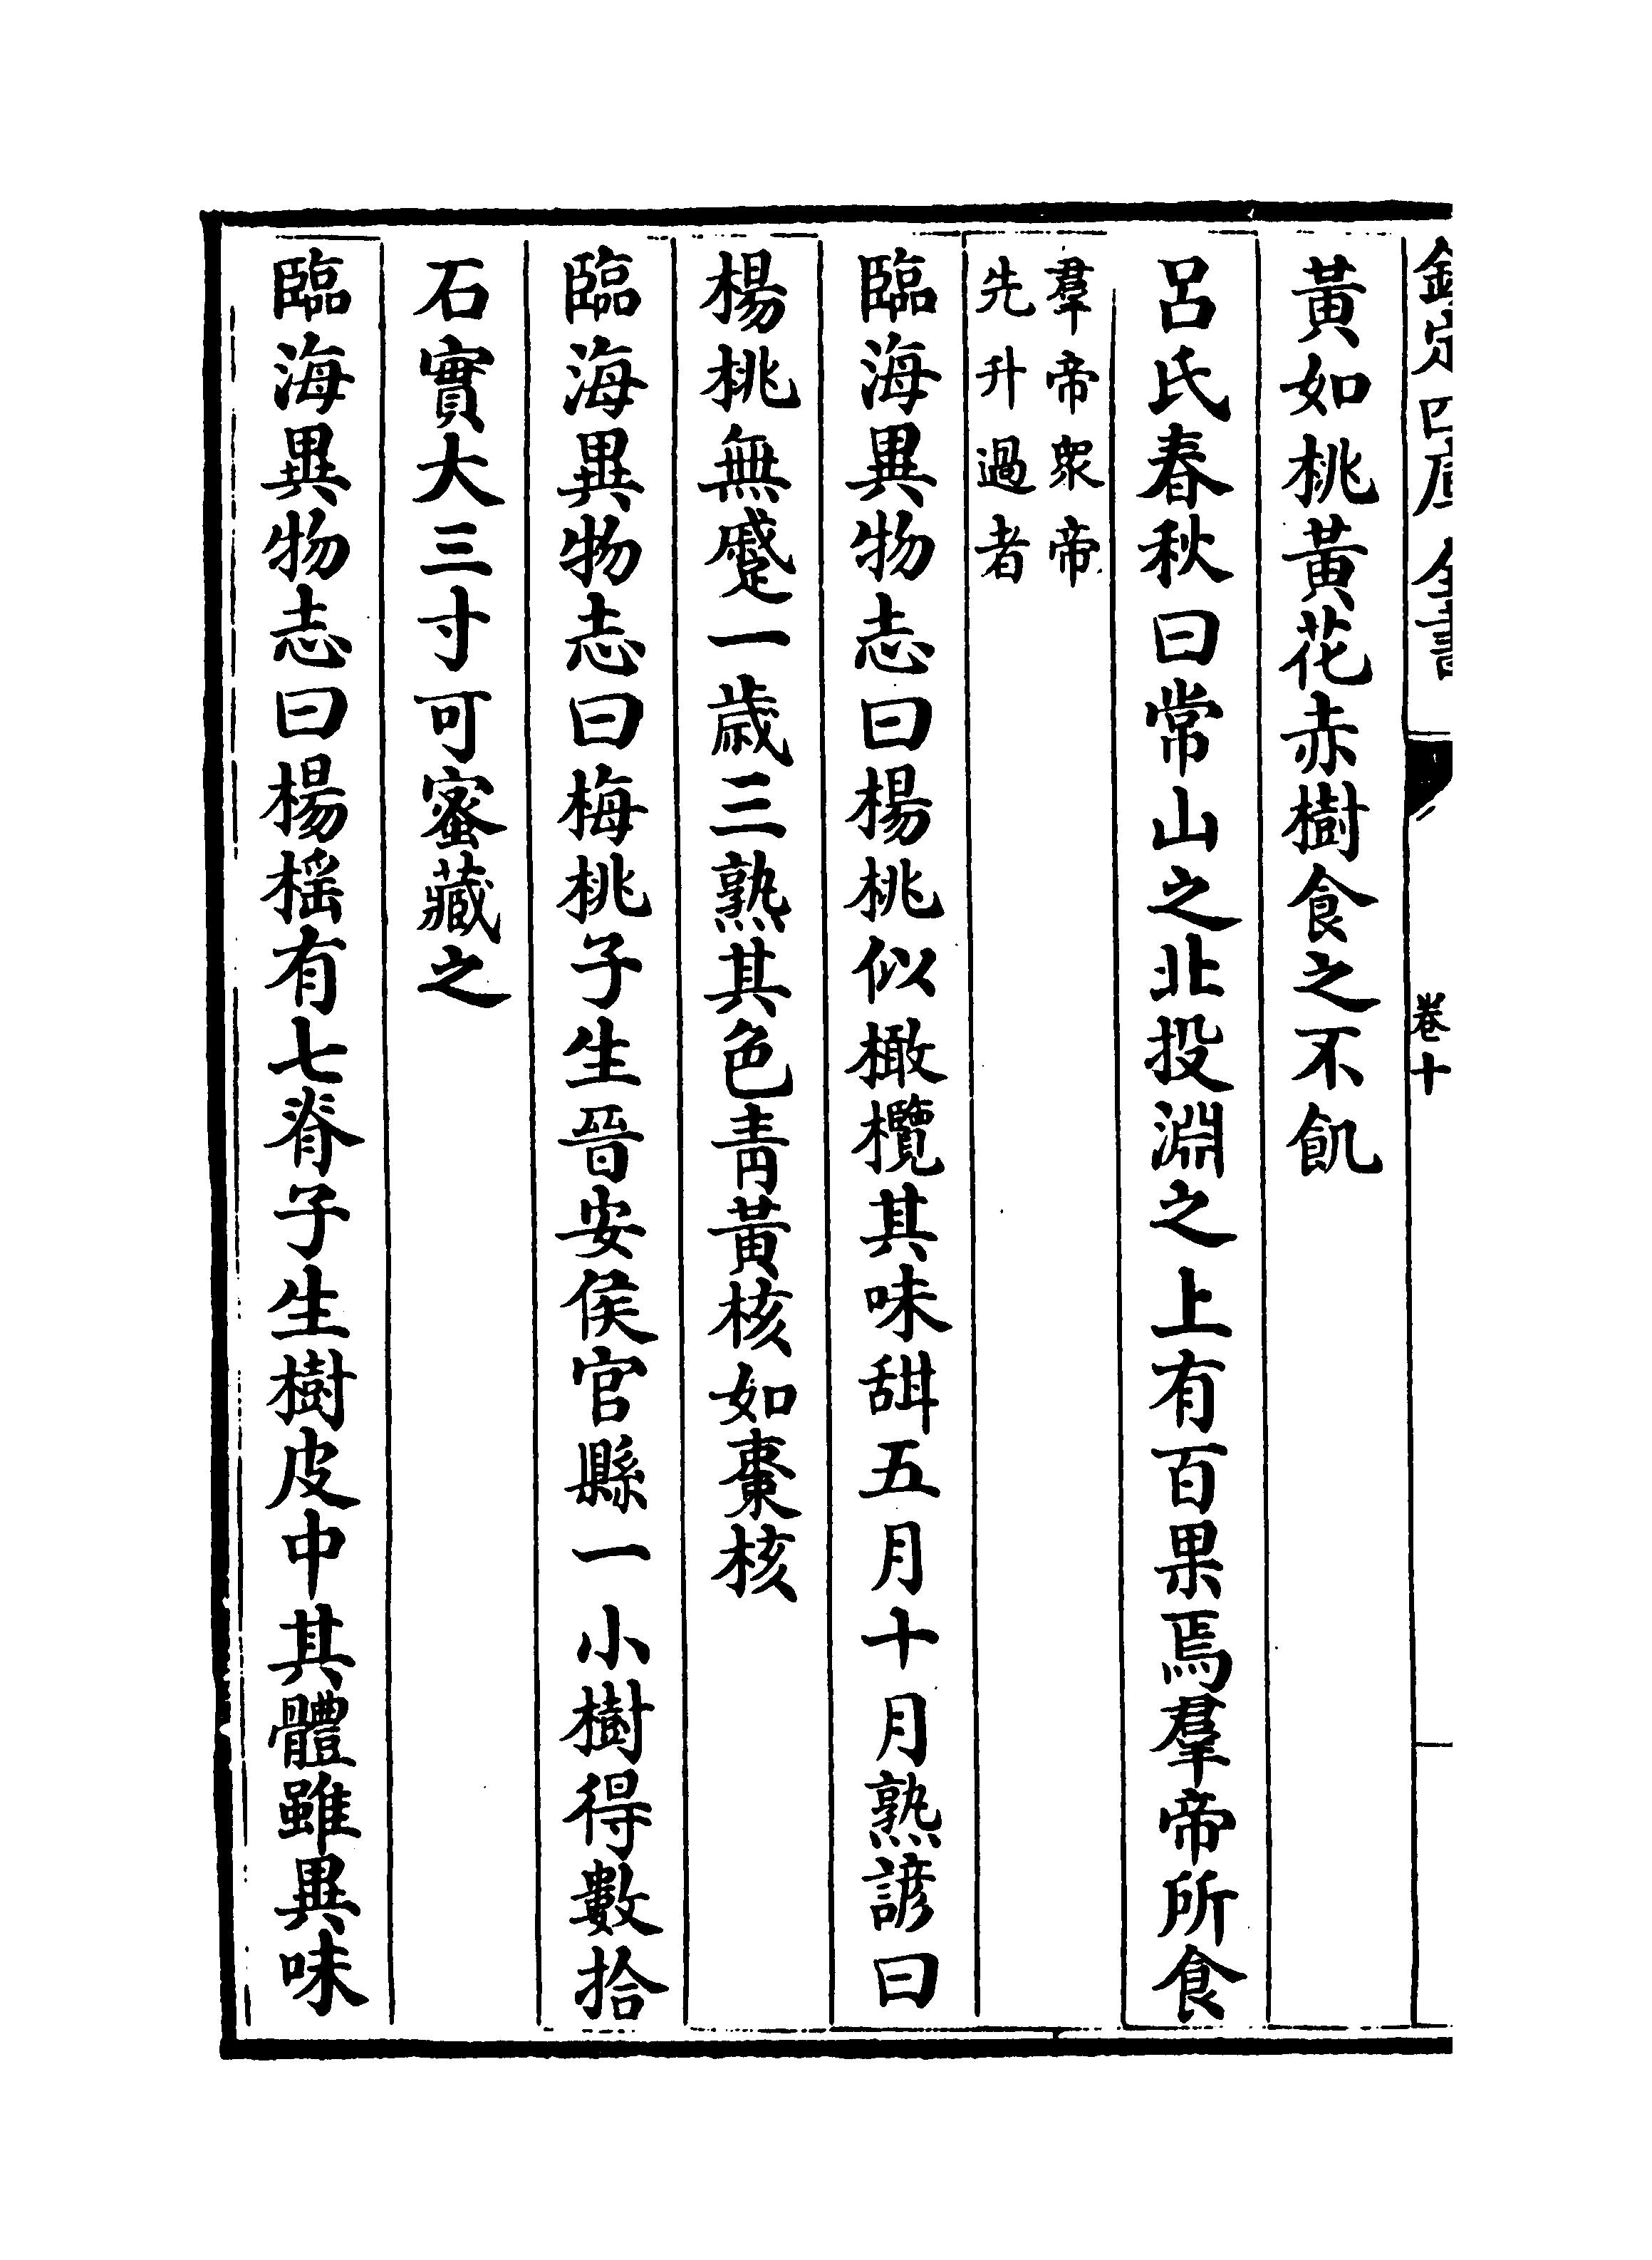 欽定四庫全書
卷十
黃如桃黃花赤樹食之不飢
呂氏春秋曰常山之北投淵之上有百果焉羣帝所食
羣帝衆帝
先升過者
臨海異物志曰楊桃似橄欖其味甜五月十月熟諺曰
楊桃無蹙一歲三熟其色青黃核如棗核
臨海異物志曰梅桃子生晉安侯官縣一小樹得數拾
石實大三寸可蜜藏之
臨海異物志曰楊榣有七脊子生樹皮中其體雖異味